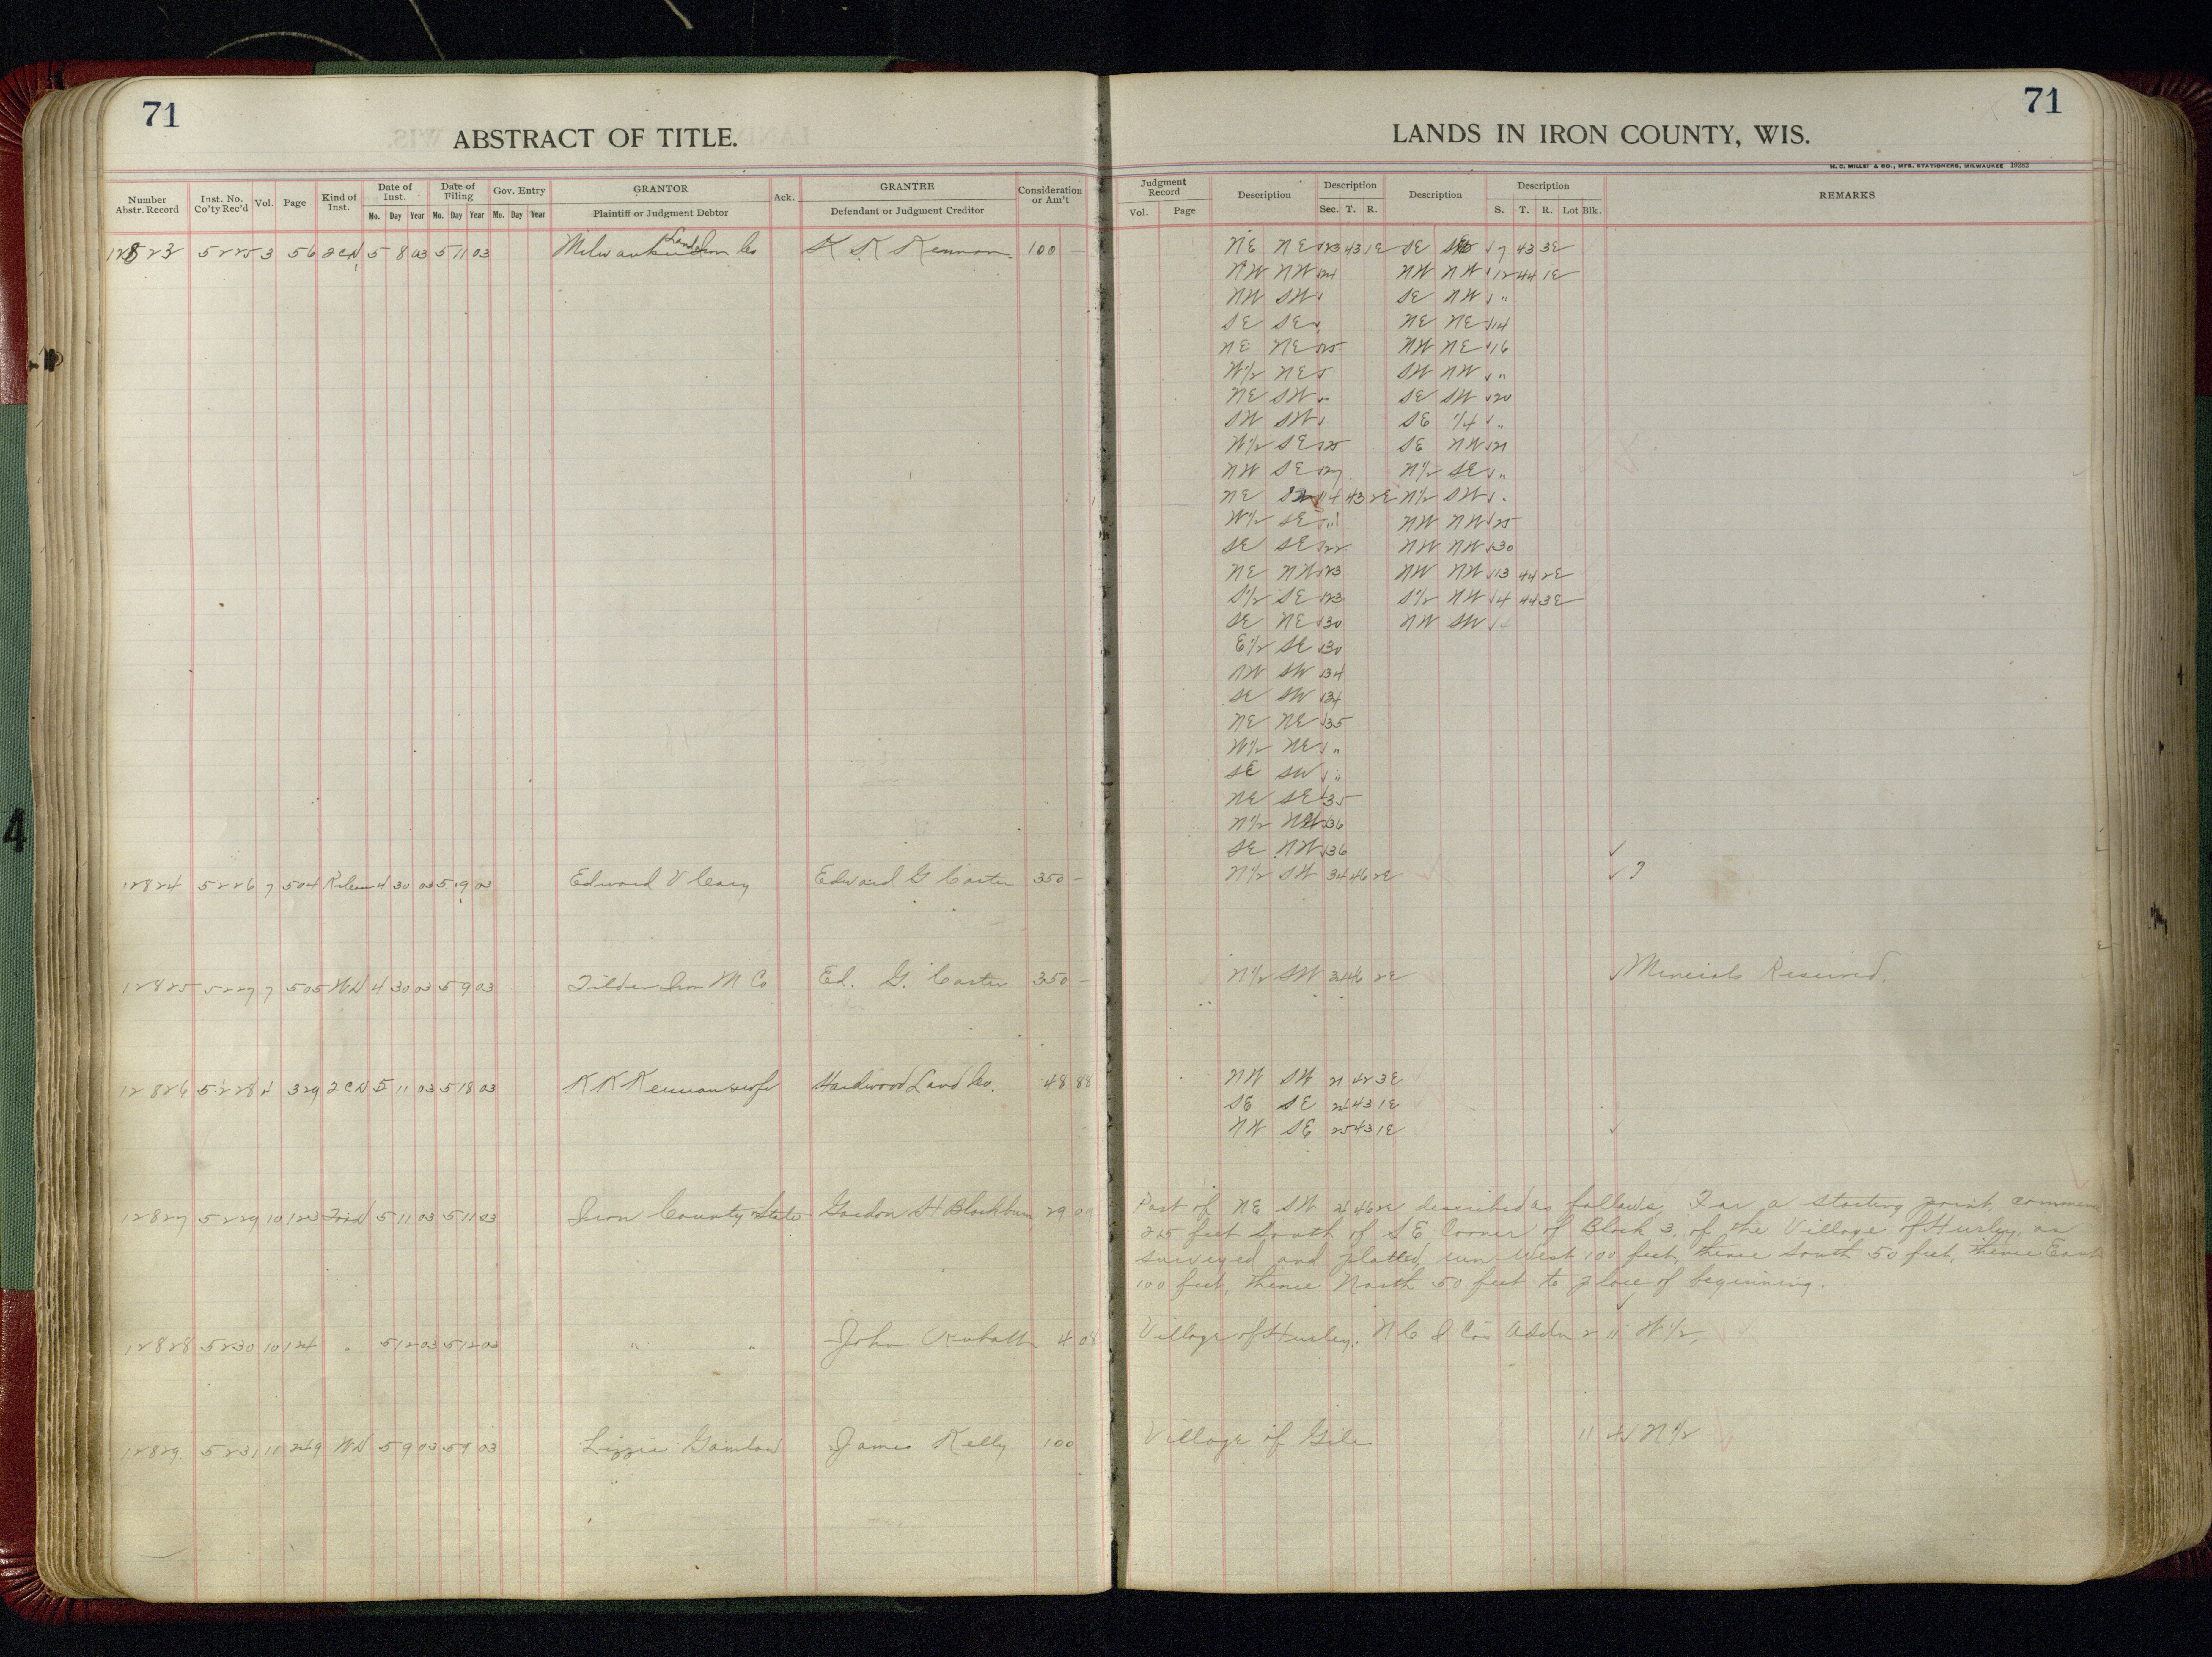 71
ABSTRACT OF TITLE.
Number Abstr. Record | Inst. No. Co'ty Rec'd | Vol. | Page | Kind of Inst. | Date of Inst. Mo. Day Year | Date of Filing Mo. Day Year | Gov. Entry Mo. Day Year | GRANTOR Plaintiff or Judgment Debtor | Ack. | GRANTEE Defendant or Judgment Creditor | Consideration or Am't
12823 5225 3 56 2CD 5 8 03 5 11 03 Milwaukee Land Iron Co K K Kennan 100 —
12824 5226 7 504 Release 4 30 03 5 9 03 Edward V Cary Edward G Carter 350 —
12825 5227 7 505 WD 4 30 03 5 9 03 Tilden Iron M Co. Ed. G. Carter 350 —
12826 5228 4 329 2CD 5 11 03 5 18 03 K K Kennan & wife Hardwood Land Co. 48 88
12827 5229 10 123 5 11 03 5 11 03 Iron County & State Gordon H Blackburn 29 09
12828 5230 10 124 " 5 12 03 5 12 03 " " John 4 08
12829 5231 11 249 WD 5 9 03 5 9 03 Lizzie James Kelly 100
71
LANDS IN IRON COUNTY, WIS.
H. C. MILLER CO., MFG. STATIONERS, MILWAUKEE 19282
Judgment Record Vol. Page | Description | Description Sec. T. R. | Description | Description S. T. R. Lot Blk. | REMARKS
NE NE 23 43 1E SE 7 43 3E
NW NW 24 NW NW 12 44 1E
NW SW SE NW "
SE SE NE NE 14
NE NE 25 NW NE 16
W½ NE SW NW "
NE SW " SE SW 20
SW SW SE ¼ "
W½ SE 25 SE NW 21
NW SE 27 N½ SE "
NE 14 43 2E N½ SW "
W½ SE " NW NW 25
SE SE 22 NW NW 30
NE NW 23 NW NW 13 44 2E
S½ SE 23 S½ NW 4 44 3E
SE NE 30 NW SW
E½ SE 30
NW SW 34
SE SW 34
NE NE 35
W½ NE "
SE SW "
NE SE 35
N½ 36
SE NW 36
N½ SW 34 46 2E ?
N½ SW 34 46 2E Minerals Reserved.
NW SW 21 42 3E
SE SE 24 43 1E
NW SE 25 43 1E
Part of NE SW 24 46 2E described as follows, For a starting point, commence
225 feet South of SE Corner of Block 3, of the Village of Hurley, as
surveyed and platted, run West 100 feet, thence South 50 feet, thence East
100 feet, thence North 50 feet to place of beginning.
Village of Hurley. N C I Co's Addn 2 11 W½,
Village of Gile 11 4 N½